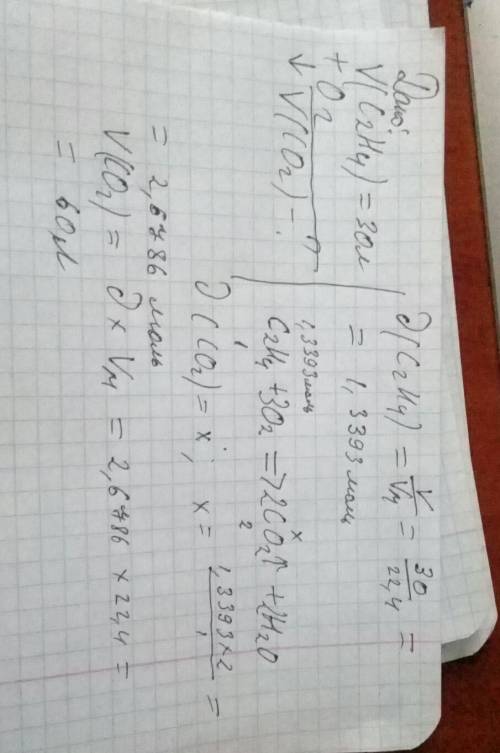 Дано:
V(C2H4) = 30л
+ O2
↓ V(CO2) - ?
∂(C2H4) = V/Vм = 30/22,4 =
= 1,3393 моль
1,3393 моль x
C2H4 + 3O2 => 2CO2↑ + 2H2O
1 2
∂(CO2) = x; x = 1,3393 × 2/1 =
= 2,6786 моль
V(CO2) = ∂ × Vм = 2,6786 × 22,4 =
= 60л